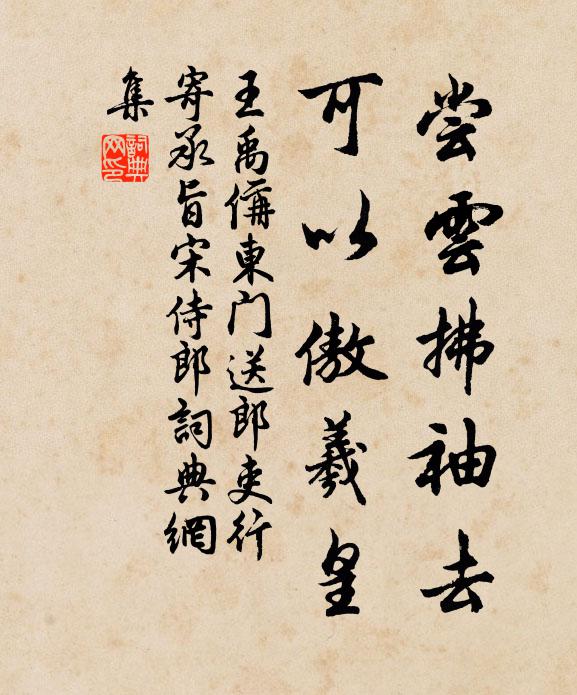 尝雲拂袖去
可以傲羲皇
王禹偁東门送郎吏行
寄承旨宋侍郎詞典網
集
詞典网印